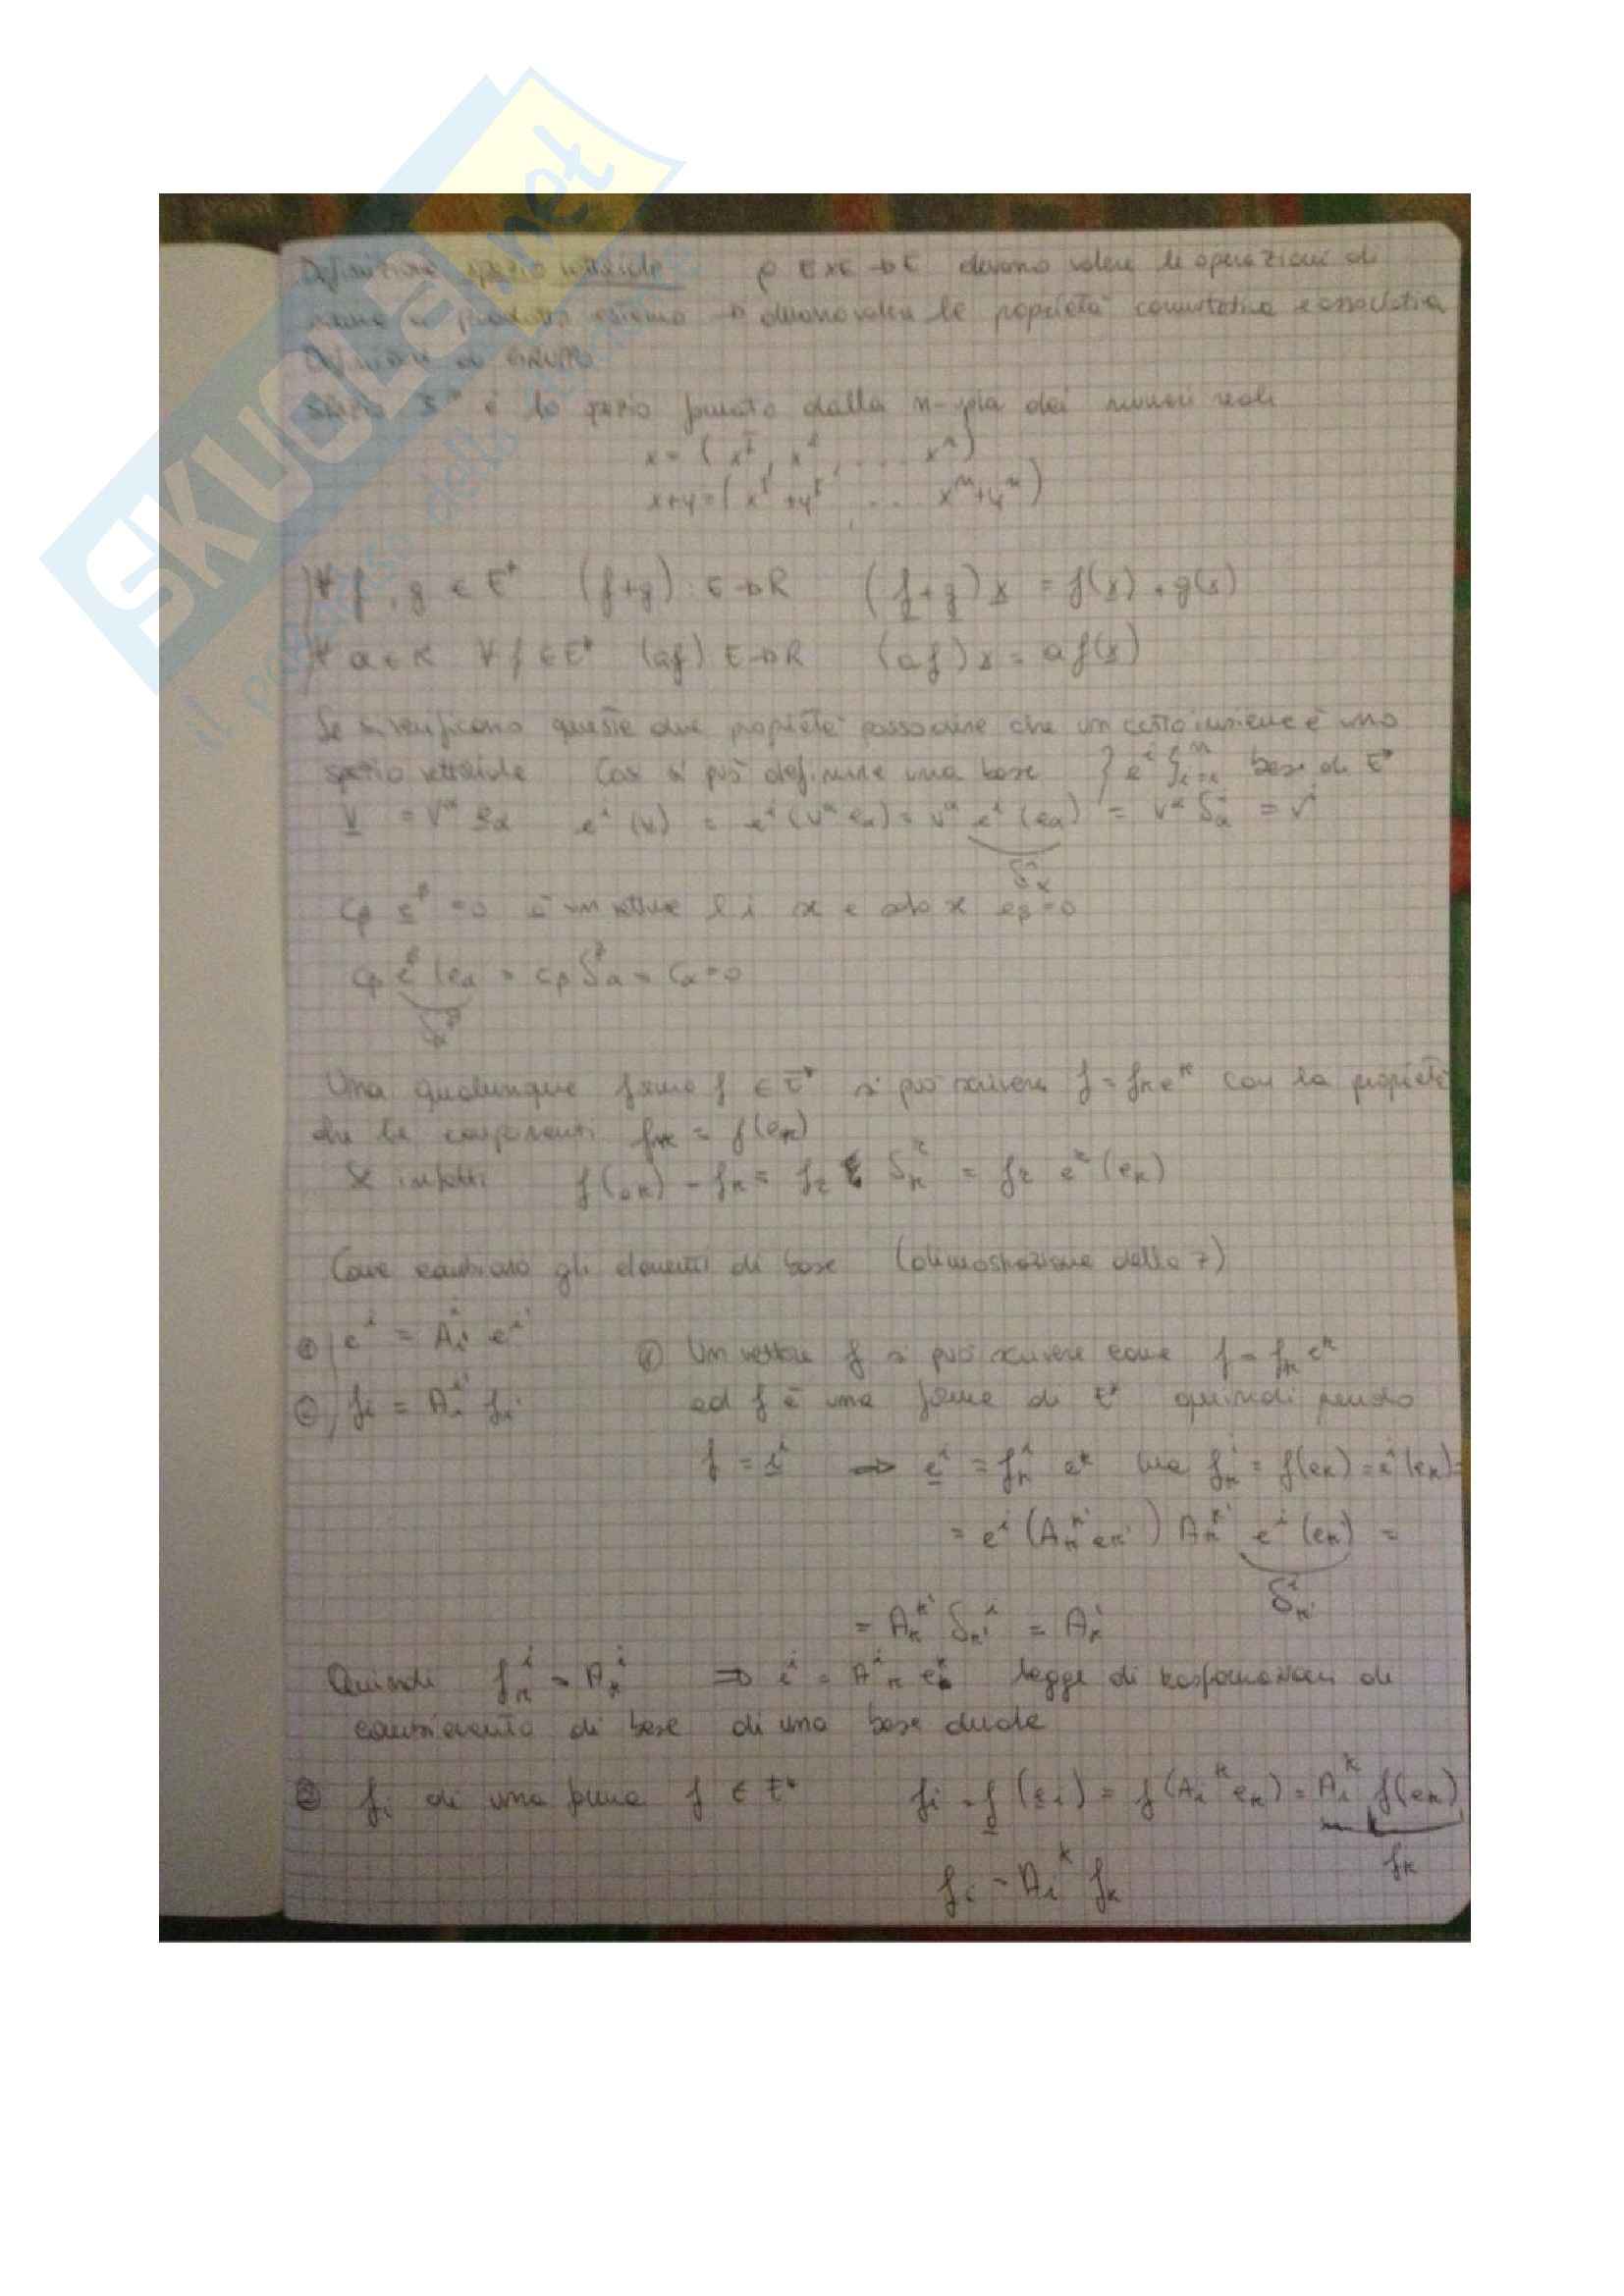 SKUOLA.net
il paradiso dello studente
Definizione spazio vettoriale ρ E×E → E devono valere le operazioni di
somma e prodotto esterno → devono valere le proprietà commutativa e associativa
Definizione di GRUPPO
è lo spazio formato dalla n-upla dei numeri reali
x = ( x¹, x², ... xⁿ)
x+y = ( x¹+y¹, ... xⁿ+yⁿ )
∀ f, g ∈ E* (f+g): E → R (f+g)x = f(x) + g(x)
∀ a ∈ R ∀ f ∈ E* (af) E → R (af)x = a f(x)
Se si verificano queste due proprietà posso dire che un certo insieme è uno
spazio vettoriale Così si può definire una base }eⁱ{ⁿ base di E*
v = vᵅ e_α eⁱ(v) = eⁱ(vᵅ e_α) = vᵅ eⁱ(e_α) = vᵅ δⁱ_α = vⁱ
δⁱ_α
c_β e^β = 0 è l i
c_β e^β (e_α = c_β δ^β_α = c_α = 0
δ^β_α
Una qualunque forma f ∈ E* si può scrivere f = f_k e^k con la proprietà
che le componenti f_k = f(e_k)
Se infatti f(e_k) = f_k = f_z δ^z_k = f_z e^z (e_k)
Come cambiano gli elementi di base (dimostrazione della 7)
eⁱ = Aⁱ_i' e^i'
f_i = A_i^i' f_i'
Un vettore f si può scrivere come f = f_k e^k
ed f è una forma di E* quindi prendo
f = eⁱ ⇒ eⁱ = fⁱ_k e^k ma fⁱ_k = f(e_k) = eⁱ(e_k) =
= eⁱ (A_k^k' e_k') A_k^k' eⁱ (e_k) =
δⁱ_k'
= A_k^k' δ_k'ⁱ = A_kⁱ
Quindi f_kⁱ = A_kⁱ ⇒ eⁱ = Aⁱ_k e^k legge di trasformazioni di
cambiamento di base di una base duale
② f_i di una forma f ∈ E* f_i = f(e_i) = f(A_i^k e_k) = A_i^k f(e_k)
f_k
f_i = A_i^k f_k